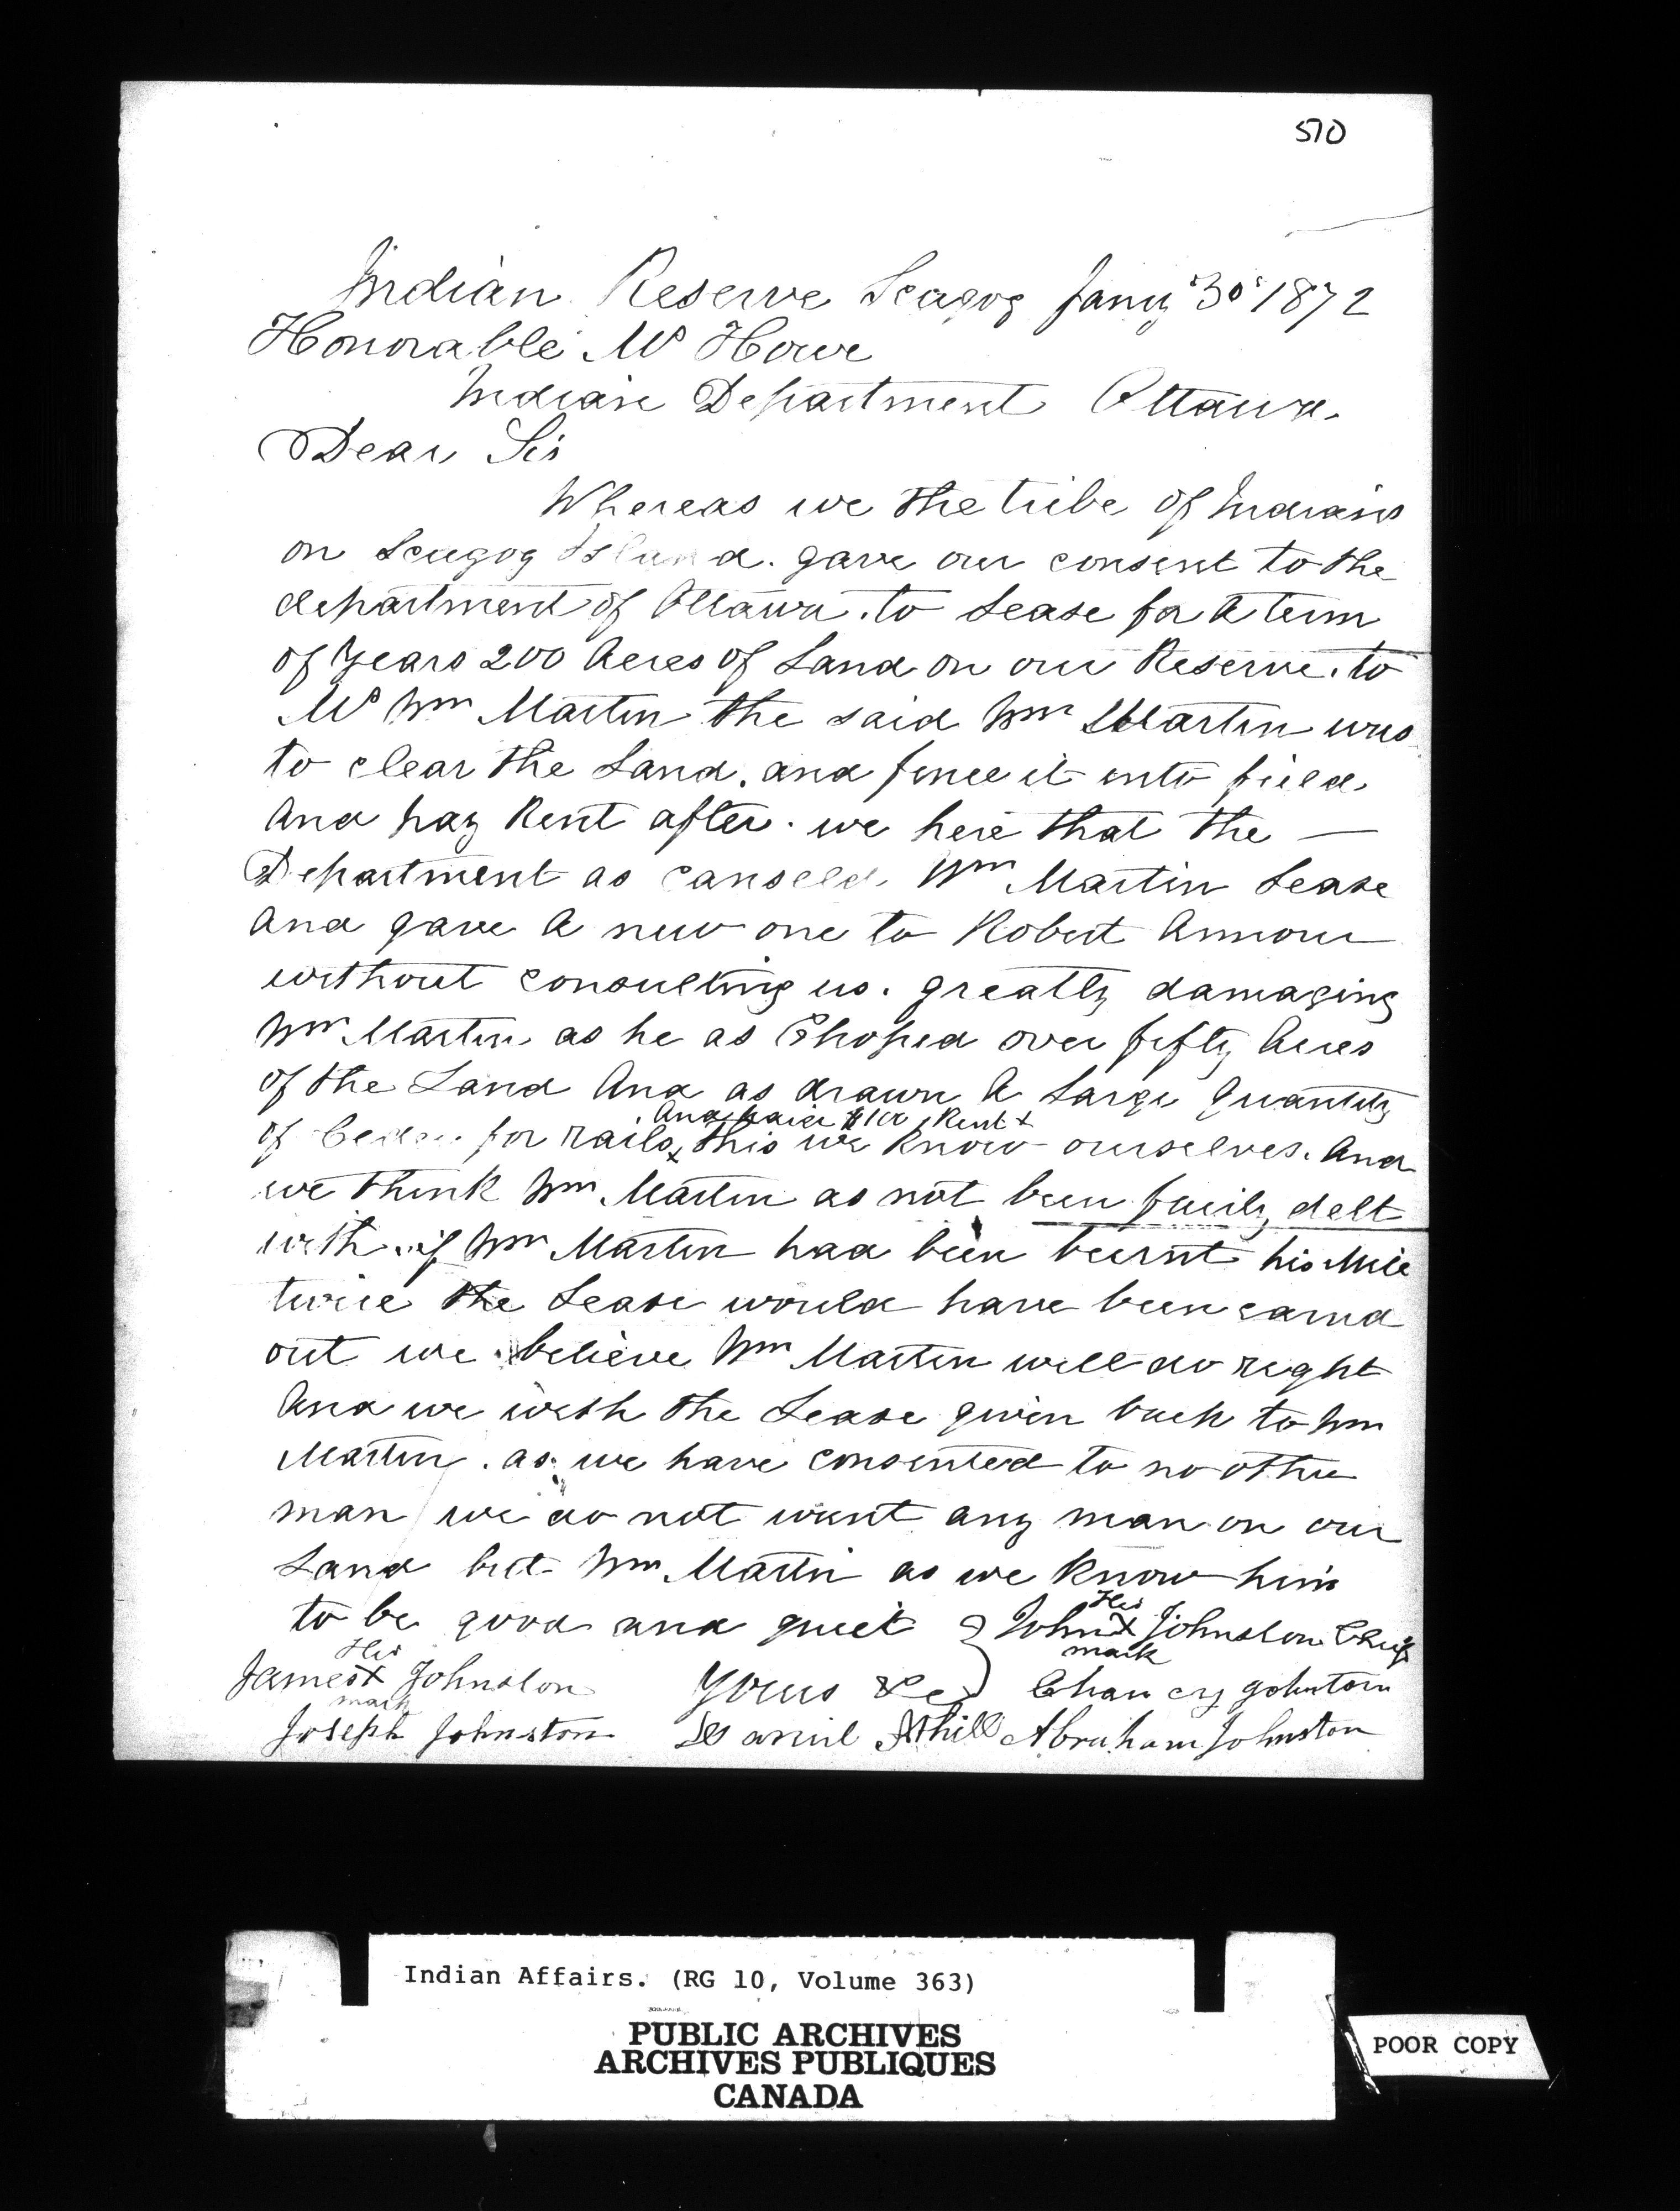 510
Indian Reserve Scugog Jany 30 1872
Honorable Mr Howe
Indian Department Ottawa.
Dear Sir
Whereas we the tribe of Indians
on Scugog Island. gave our consent to the
department of Ottawa. to Lease for A term
of Years 200 Acres of Land on our Reserve. to
Mr Wm Martin the said Wm Martin was
to clear the Land. and fence it into field.
And pay Rent after. we here that the —
Department as canseld Wm Martin Lease
And gave A new one to Robert Armour
without consulting us. greatly damaging
Wm Martin as he as Choped over fifty Acres
of the Land And as drawn A Large Quantity
And paid Rent +
of Ceder for rails + this we Know ourselves. And
we think Wm Martin as not been fairly delt
with. if Wm Martin had been burnt his Mill
twice the Lease would have been carrid
out we believe Wm Martin will do right
And we wish the Lease given back to Wm
Martin. as we have consented to no other
man we do not want any man on our
Land but Wm Martin as we Know him
to be good and quiet } John His X mark Johnston Chief
James His X mark Johnston Yours &c Chauncy Johnston
Joseph Johnston Abraham Johnston
Indian Affairs. (RG 10, Volume 363)
PUBLIC ARCHIVES
ARCHIVES PUBLIQUES
CANADA
POOR COPY